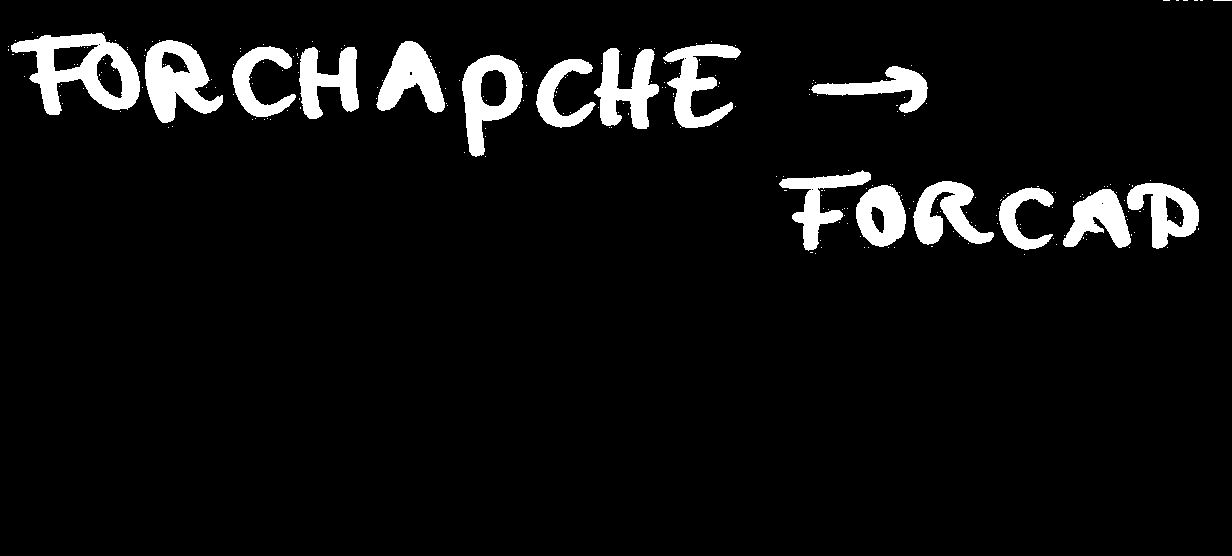 FORCHAPCHE →
FORCAP